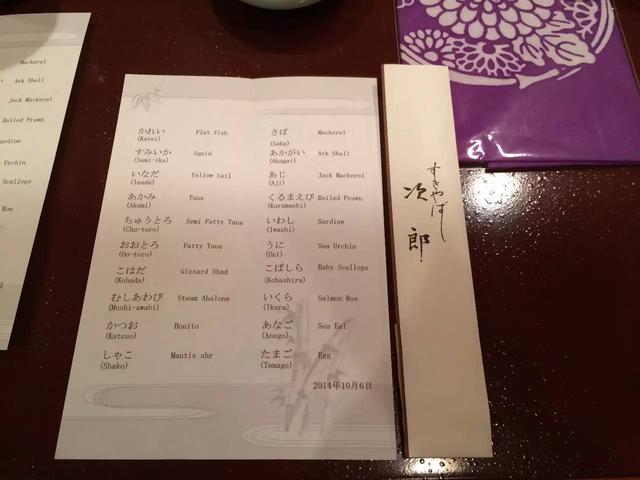 Mackerel
Ark Shell
Jack Mackerel
Boiled Prawn
Sardine
Urchin
Scallops
Roe
日
かれい Flat fish
(Karei)
すみいか Squid
(Sumi-ika)
いなだ Yellow tail
(Inada)
あかみ Tuna
(Akami)
ちゅうとろ Semi Fatty Tuna
(Chu-toro)
おおとろ Fatty Tuna
(Oo-toro)
こはだ Gizzard Shad
(Kohada)
むしあわび Steam Abalone
(Mushi-awabi)
かつお Bonito
(Katsuo)
しゃこ Mantis shr
(Shako)
さば Mackerel
(Saba)
あかがい Ark Shell
(Akagai)
あじ Jack Mackerel
(Aji)
くるまえび Boiled Prawn
(Kurumaebi)
いわし Sardine
(Iwashi)
うに Sea Urchin
(Uni)
こばしら Baby Scallops
(Kobashira)
いくら Salmon Roe
(Ikura)
あなご Sea Eel
(Anago)
たまご Egg
(Tamago)
2014年10月6日
すきやばし
次郎